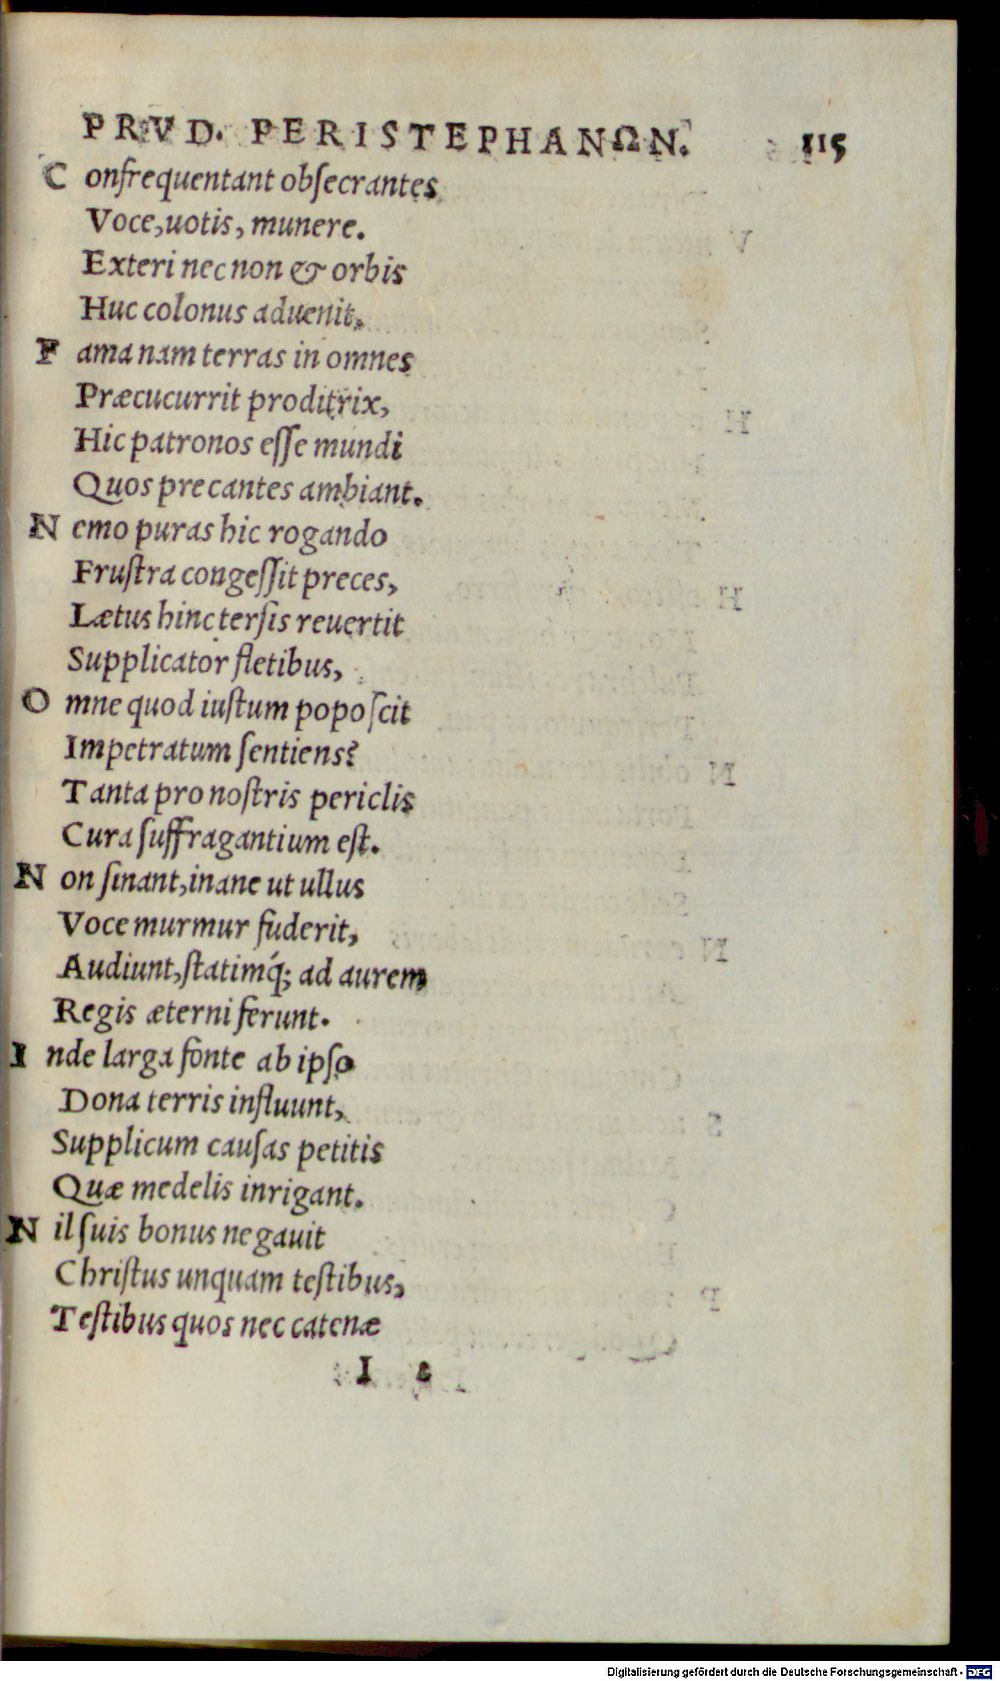 PRVD. PERISTEPHANΩN. 115
C onfrequentant obſecrantes
Voce,uotis, munere.
Exteri nec non & orbis
Huc colonus aduenit.
F ama nam terras in omnes
Præcucurrit proditrix,
Hic patronos eſſe mundi
Quos precantes ambiant.
N emo puras hic rogando
Fruſtra congeſſit preces,
Lætus hinc terſis reuertit
Supplicator fletibus,
O mne quod iuſtum popoſcit
Impetratum ſentiens?
Tanta pro noſtris periclis
Cura ſuffragantium eſt.
N on ſinant,inane ut ullus
Voce murmur fuderit,
Audiunt,ſtatimq́; ad aurem
Regis æterni ferunt.
I nde larga fonte ab ipſo
Dona terris influunt,
Supplicum cauſas petitis
Quæ medelis inrigant.
N il ſuis bonus negauit
Chriſtus unquam teſtibus,
Teſtibus quos nec catenæ
I 2
Digitalisierung gefördert durch die Deutsche Forschungsgemeinschaft - DFG